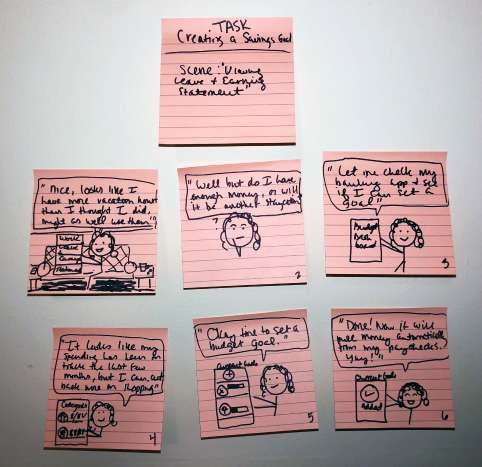 TASK
Creating a Savings Goal
Scene: "Viewing
Leave + Earning
Statement"
"Nice, looks like I
have more vacation hours
than I thought I did,
might as well use them"
Work
Leave
"Well but do I have
enough money, or will
it be another staycation
?
2
"Let me check my
banking app and see
if I can set a
goal"
Budget
Dash
board
3
"It looks like my
spending has been on
track the last few
months, but I can cut
back more on shopping"
Categories
4
"Okay time to set a
budget goal."
Current Goals
5
"Done! Now it will
pull money automatically
from my paychecks.
Yay!"
Current Goals
added
6